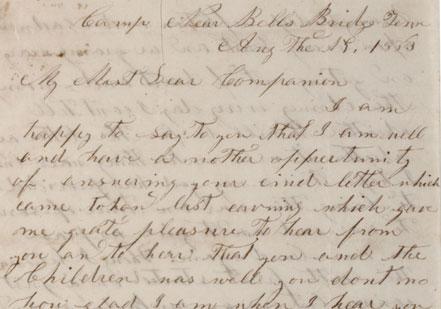 Camp Near Bells Bridge Tenn
Aug The 18, 1863
My Most Dear Companion
I am
happy to say to you that I am well
and have a nother oppertunity
of answering your cind letter which
came to han last eavning which gave
me grate pleasure to hear from
you an to hear that you and the
Children was well you dont no
how glad I am when I hear you